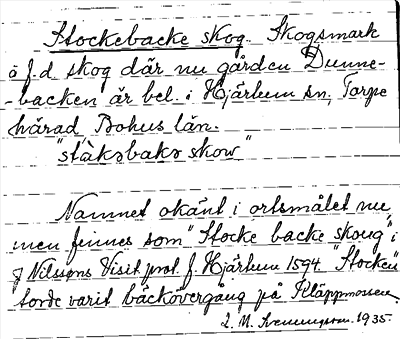 Stockebacke skog. Skogsmark
å f.d skog där nu gården Dunne-
-backen är bel. i Hjärtum sn, Torpe
härad Bohus län.
"ståksbaks skow"
Namnet okänt i ortsmålet nu,
men finnes som "Stocke backe skoug" i
J Nilssons Visit.prot. f. Hjärtum 1594. "Stocken"
torde varit bäckövergång på Kläppmossen.
L. M. Svenungsson. 1935.